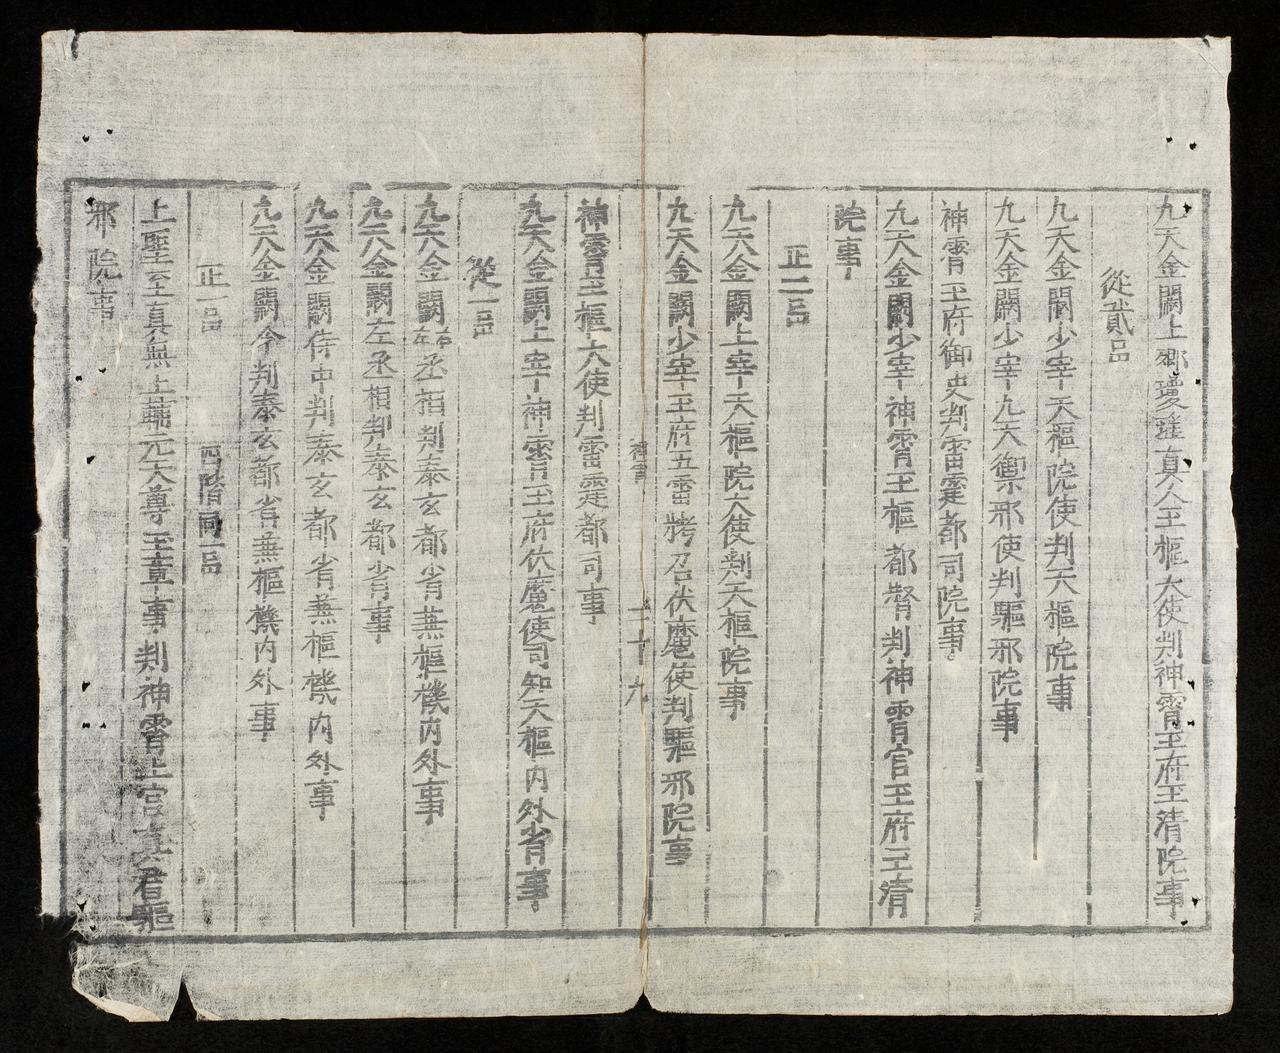 九天金闕上卿瓊瑤真人玉樞大使判神霄玉府玉清院事
從貳品
九天金闕少宰天樞院使判天樞院事
九天金闕少宰九天禦邪使判驅邪院事
神霄玉府御史判雷霆都司院事
九天金闕少宰神霄玉樞都督判神霄官玉府玉清
院事
正二品
九天金闕上宰天樞院大使判天樞院事
九天金闕少宰玉府五雷拷召伏魔使判驅邪院事
神霄
二十九
神霄玉樞大使判雷霆都司事
九天金闕上宰神霄玉府伏魔使司知天樞內外省事
從一品
九天金闕左右丞相判泰玄都省兼樞機內外事
九天金闕左丞相判泰玄都省事
九天金闕侍中判泰玄都省兼樞機内外事
九天金闕令判泰玄都省兼樞機内外事
正一品 四階同一品
上聖至真無上元天尊玉章事判神霄上宮真君驅
邪院事